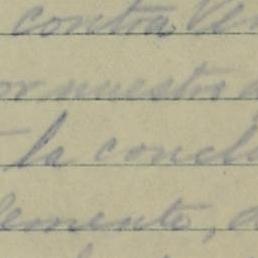 contra Ven
or nuestro
la conclu
lemente, d